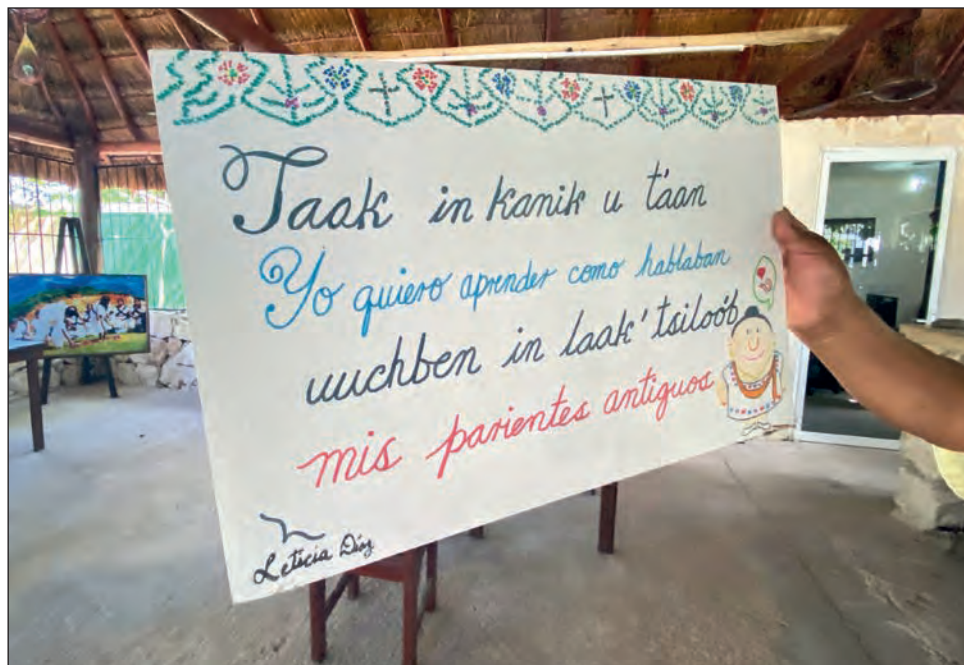 Taak in kanik u t'aan
Yo quiero aprender como hablaban
uuchben in laak' tsiloób
mis parientes antiguos
Leticia Díaz